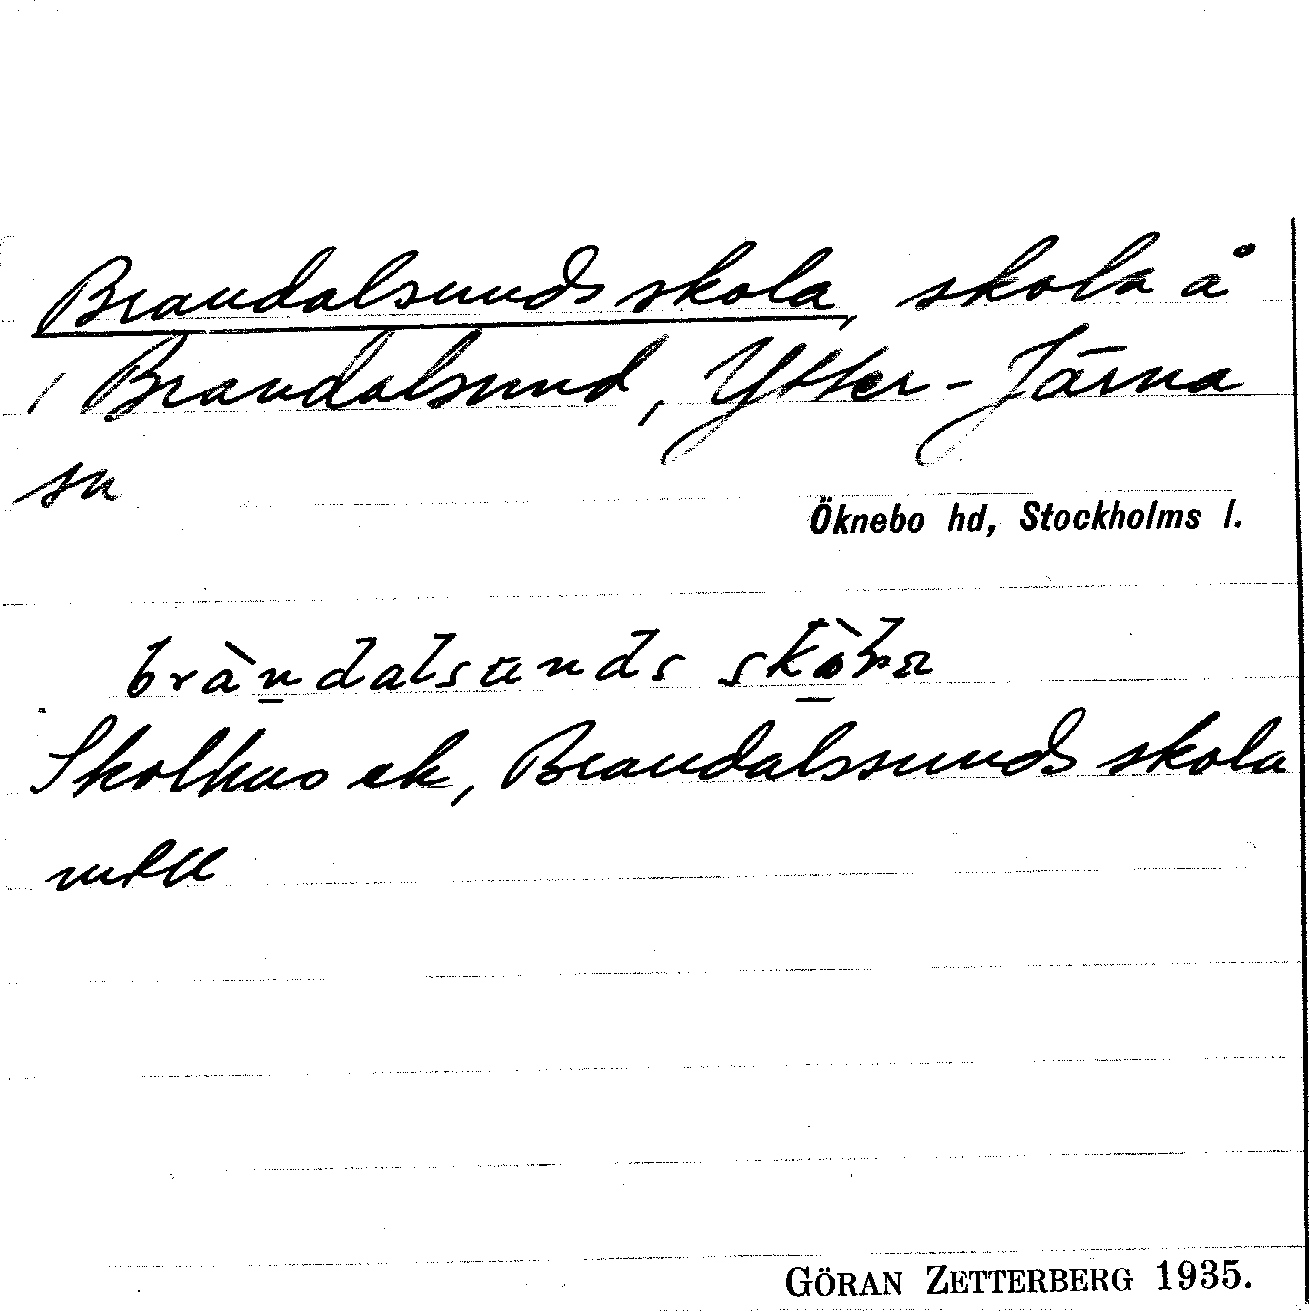 Brandalsunds skola, skola å
1 Brandalsund, Ytter-Järna
sn
Öknebo hd, Stockholms l.
bràndalsunds skòla
Skolhus ek, Brandalssunds skola
GÖRAN ZETTERBERG 1935.